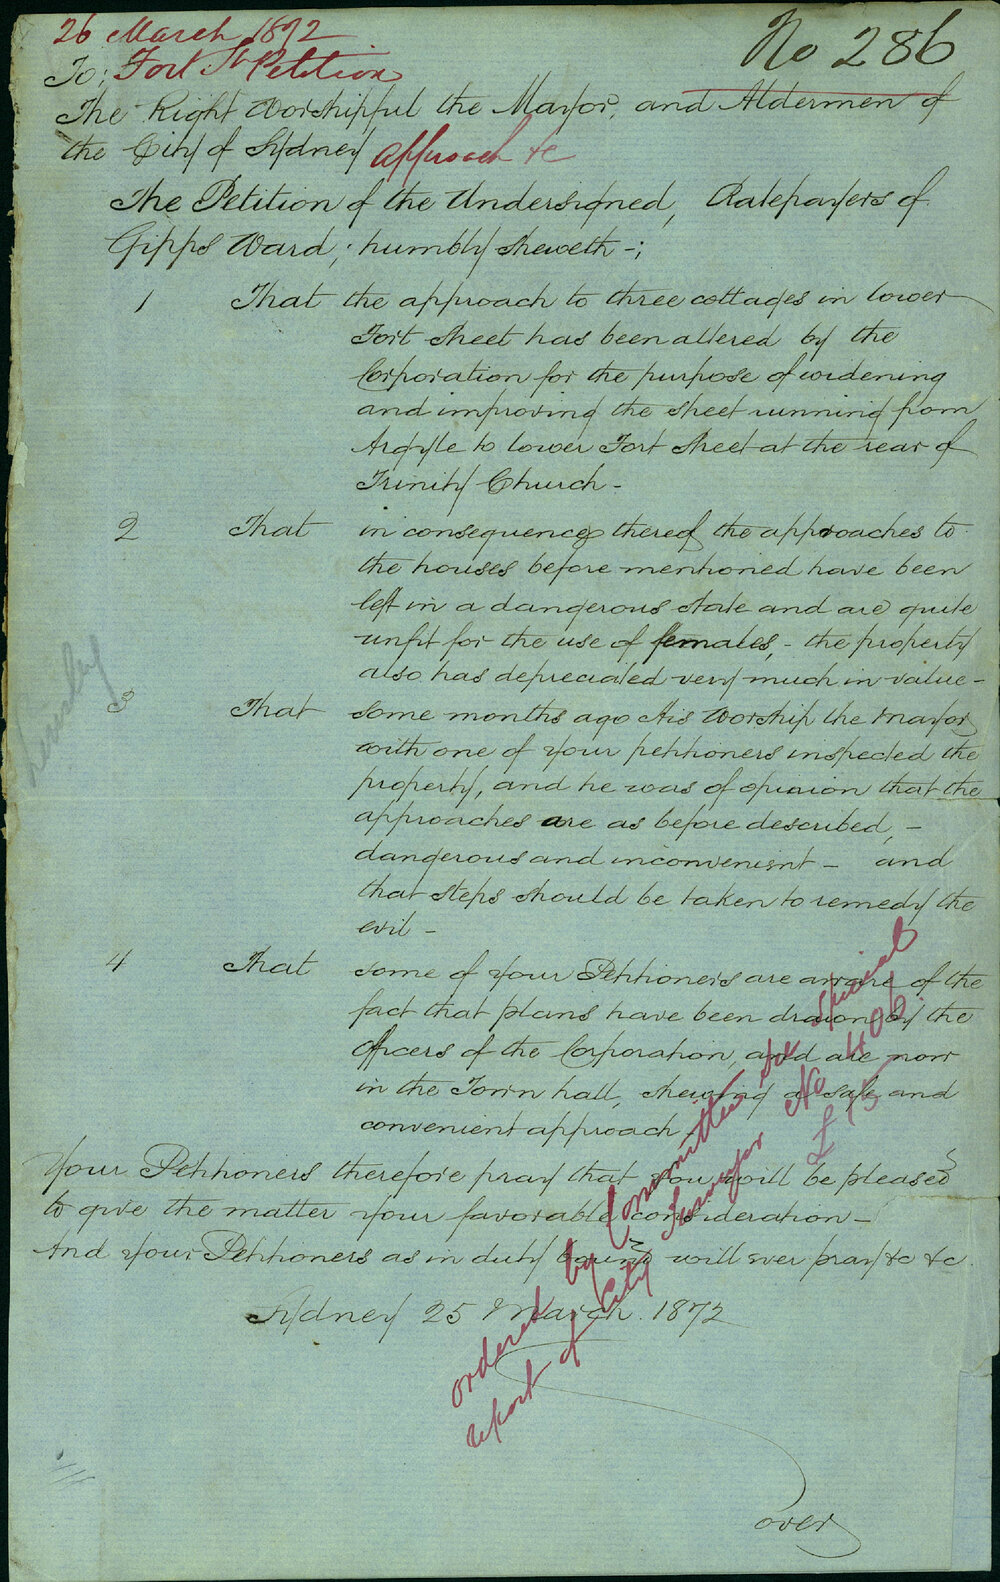 26 March 1872
No 286
To; Fort St Petition
The Right Worshipful the Mayor, and Aldermen of
the City of Sydney approach &c
The Petition of the Undersigned, Ratepayers of
Gipps Ward, humbly sheweth -;
1 That the approach to three cottages in lower
Fort Street has been altered by the
Corporation for the purpose of widening
and improving the street running from
Argyle to lower Fort Street at the rear of
Trinity Church -
2 That in consequence thereof the approaches to
the houses before mentioned have been
left in a dangerous state and are quite
unfit for the use of females, - the property
also has depreciated very much in value -
3 That some months ago His Worship the Mayor
with one of your petitioners inspected the
property, and he was of opinion that the
approaches are as before described, -
dangerous and inconvenient - and
that steps should be taken to remedy the
evil -
4 That some of your Petitioners are aware of the
fact that plans have been drawn by the
officers of the Corporation, and are now
in the Town hall, shewing a safe and
convenient approach -
Your Petitioners therefore pray that you will be pleased
to give the matter your favorable consideration -
And your Petitioners as in duty bound will ever pray &c &c
Sydney 25 March. 1872
ordered by Committee see special
report of City Surveyor No 406
£15
over